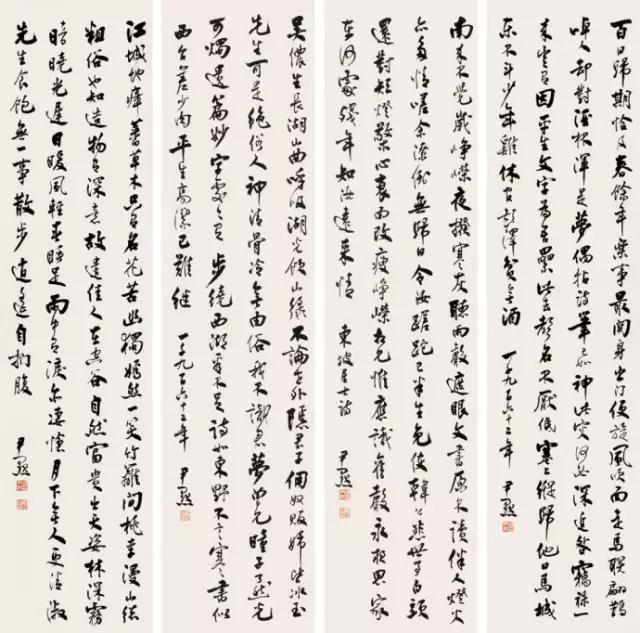 百日歸期恰及春餘年樂事最關身出門便旋風吹面走馬聯翩鵲
啅人卻對酒杯渾是夢偶拈詩筆已如神此災何必深追咎竊祿從
來豈有因平生文字為吾累此去聲名不厭低塞上縱歸他日馬城
東不鬥少年雞休官彭澤貧無酒 一千九百六十三年 尹默
南來不覺歲崢嶸夜撥寒灰聽雨聲遮眼文書原不讀伴人燈火
亦多情嗟余潦倒無歸日今汝蹉跎已半生免使韓公悲世事白頭
還對短燈檠心衰面改瘦崢嶸相見惟應識舊聲永夜思家
在何處殘年知汝遠來情 東坡居士詩 尹默
吳儂生長湖山曲呼吸湖光飲山綠不論世外隱君子傭奴販婦皆冰玉
先生可是絕俗人神清骨冷無由俗我不識君夢曾見瞳子瞭然光
可燭遺篇妙字處處有步繞西湖看不足詩如東野不言寒書似
西臺差少肉平生高潔已難繼 一千九百六十三年 尹默
江城地瘴蕃草木只有名花苦幽獨嫣然一笑竹籬間桃李漫山總
粗俗也知造物有深意故遣佳人在空谷自然富貴出天姿林深霧
暗曉光遲日暖風輕春睡足雨中有淚亦淒愴月下無人更清淑
先生食飽無一事散步逍遙自捫腹 尹默